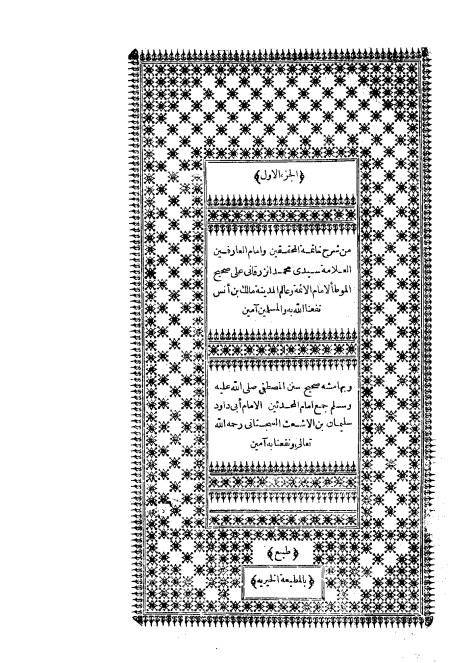 ﴿الجزء الاول﴾
من شرح خاتمة المحققين وامام العارفين
العلامة سيدى محمد الزرقانى على صحيح
الموطا لامام الائمة وعالم المدينة مالك بن أنس
نفعنا الله به والمسلمين آمين
وبهامشه صحيح سنن المصطفى صلى الله عليه
وسلم جمع امام المحدثين الامام أبى داود
سليمان بن الاشعث السجستانى رحمه الله
تعالى ونفعنا به آمين
﴿طبع﴾
﴿بالمطبعة الخيرية﴾